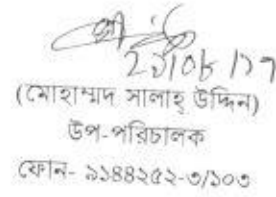 (মোহাম্মদ সালাহ্ উদ্দিন)
উপ-পরিচালক
ফোন- ৯১৪৪২৫২-৩/১০৩